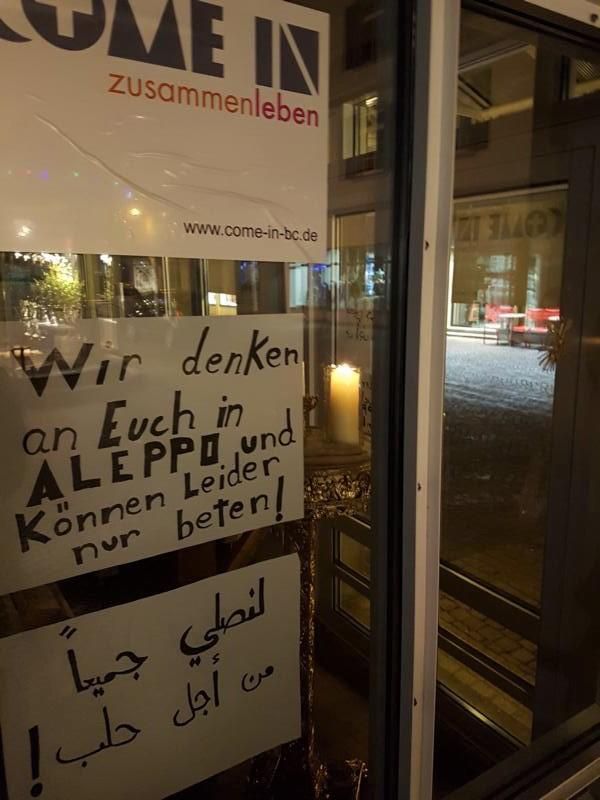 COME IN
zusammenleben
www.come-in-bc.de
Wir denken
an Euch in
ALEPPO und
Können Leider
nur beten!
لنصلي جميعاً
من أجل حلب !
COME IN